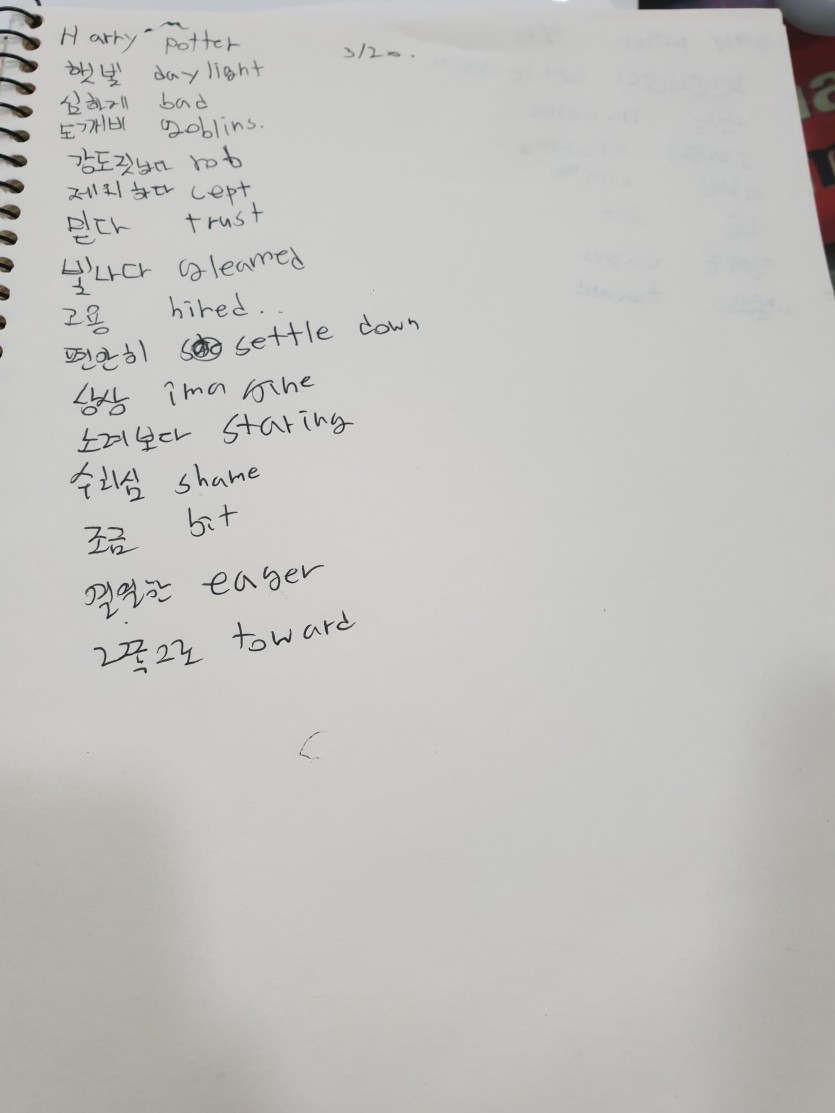 Harry potter 3/20.
햇빛 daylight
심하게 bad
도깨비 goblins.
강도짓하다 rob
제외하다 cept
믿다 trust
빛나다 gleamed
고용 hired..
편안히 settle down
상상 imagine
노려보다 staring
수치심 shame
조금 bit
열열한 eager
그쪽으로 toward